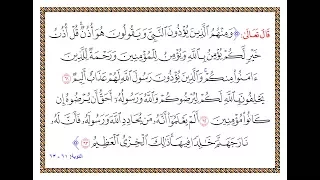 قَالَ تَعَالَى: ﴿وَمِنْهُمُ ٱلَّذِينَ يُؤْذُونَ ٱلنَّبِيَّ وَيَقُولُونَ هُوَ أُذُنٌ ۚ قُلْ أُذُنُ
خَيْرٍ لَّكُمْ يُؤْمِنُ بِٱللَّهِ وَيُؤْمِنُ لِلْمُؤْمِنِينَ وَرَحْمَةٌ لِّلَّذِينَ
ءَامَنُوا۟ مِنكُمْ ۚ وَٱلَّذِينَ يُؤْذُونَ رَسُولَ ٱللَّهِ لَهُمْ عَذَابٌ أَلِيمٌ ٦١
يَحْلِفُونَ بِٱللَّهِ لَكُمْ لِيُرْضُوكُمْ وَٱللَّهُ وَرَسُولُهُۥٓ أَحَقُّ أَن يُرْضُوهُ إِن
كَانُوا۟ مُؤْمِنِينَ ٦٢ أَلَمْ يَعْلَمُوٓا۟ أَنَّهُۥ مَن يُحَادِدِ ٱللَّهَ وَرَسُولَهُۥ فَأَنَّ لَهُۥ
نَارَ جَهَنَّمَ خَٰلِدًا فِيهَا ۚ ذَٰلِكَ ٱلْخِزْىُ ٱلْعَظِيمُ ٦٣﴾
التوبة: ٦١ - ٦٣